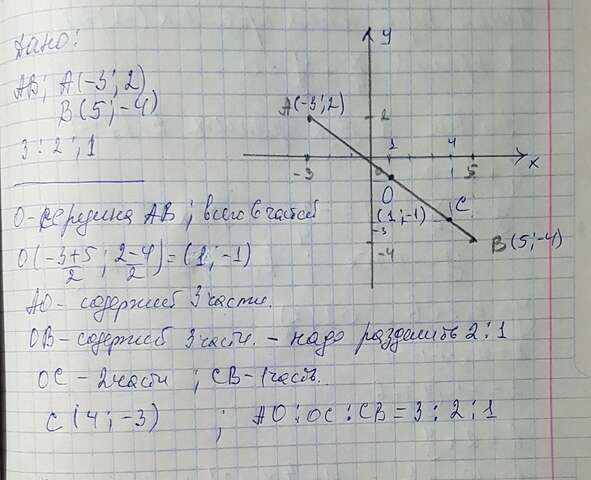 Дано:
АВ; А(-3; 2)
В(5; -4)
3 : 2 ; 1
О-середина АВ ; всего 6 частей
О(-3+5/2 ; 2-4/2) = (1; -1)
АО - содержит 3 части.
ОВ - содержит 3 части. - надо разделить 2:1
ОС - 2 части ; СВ - 1 часть.
С(4; -3) ; АО : ОС : СВ = 3 : 2 : 1
у
А(-3; 2)
2
1
4
5
-3
0
х
О
(1; -1)
С
-3
-4
В(5; -4)